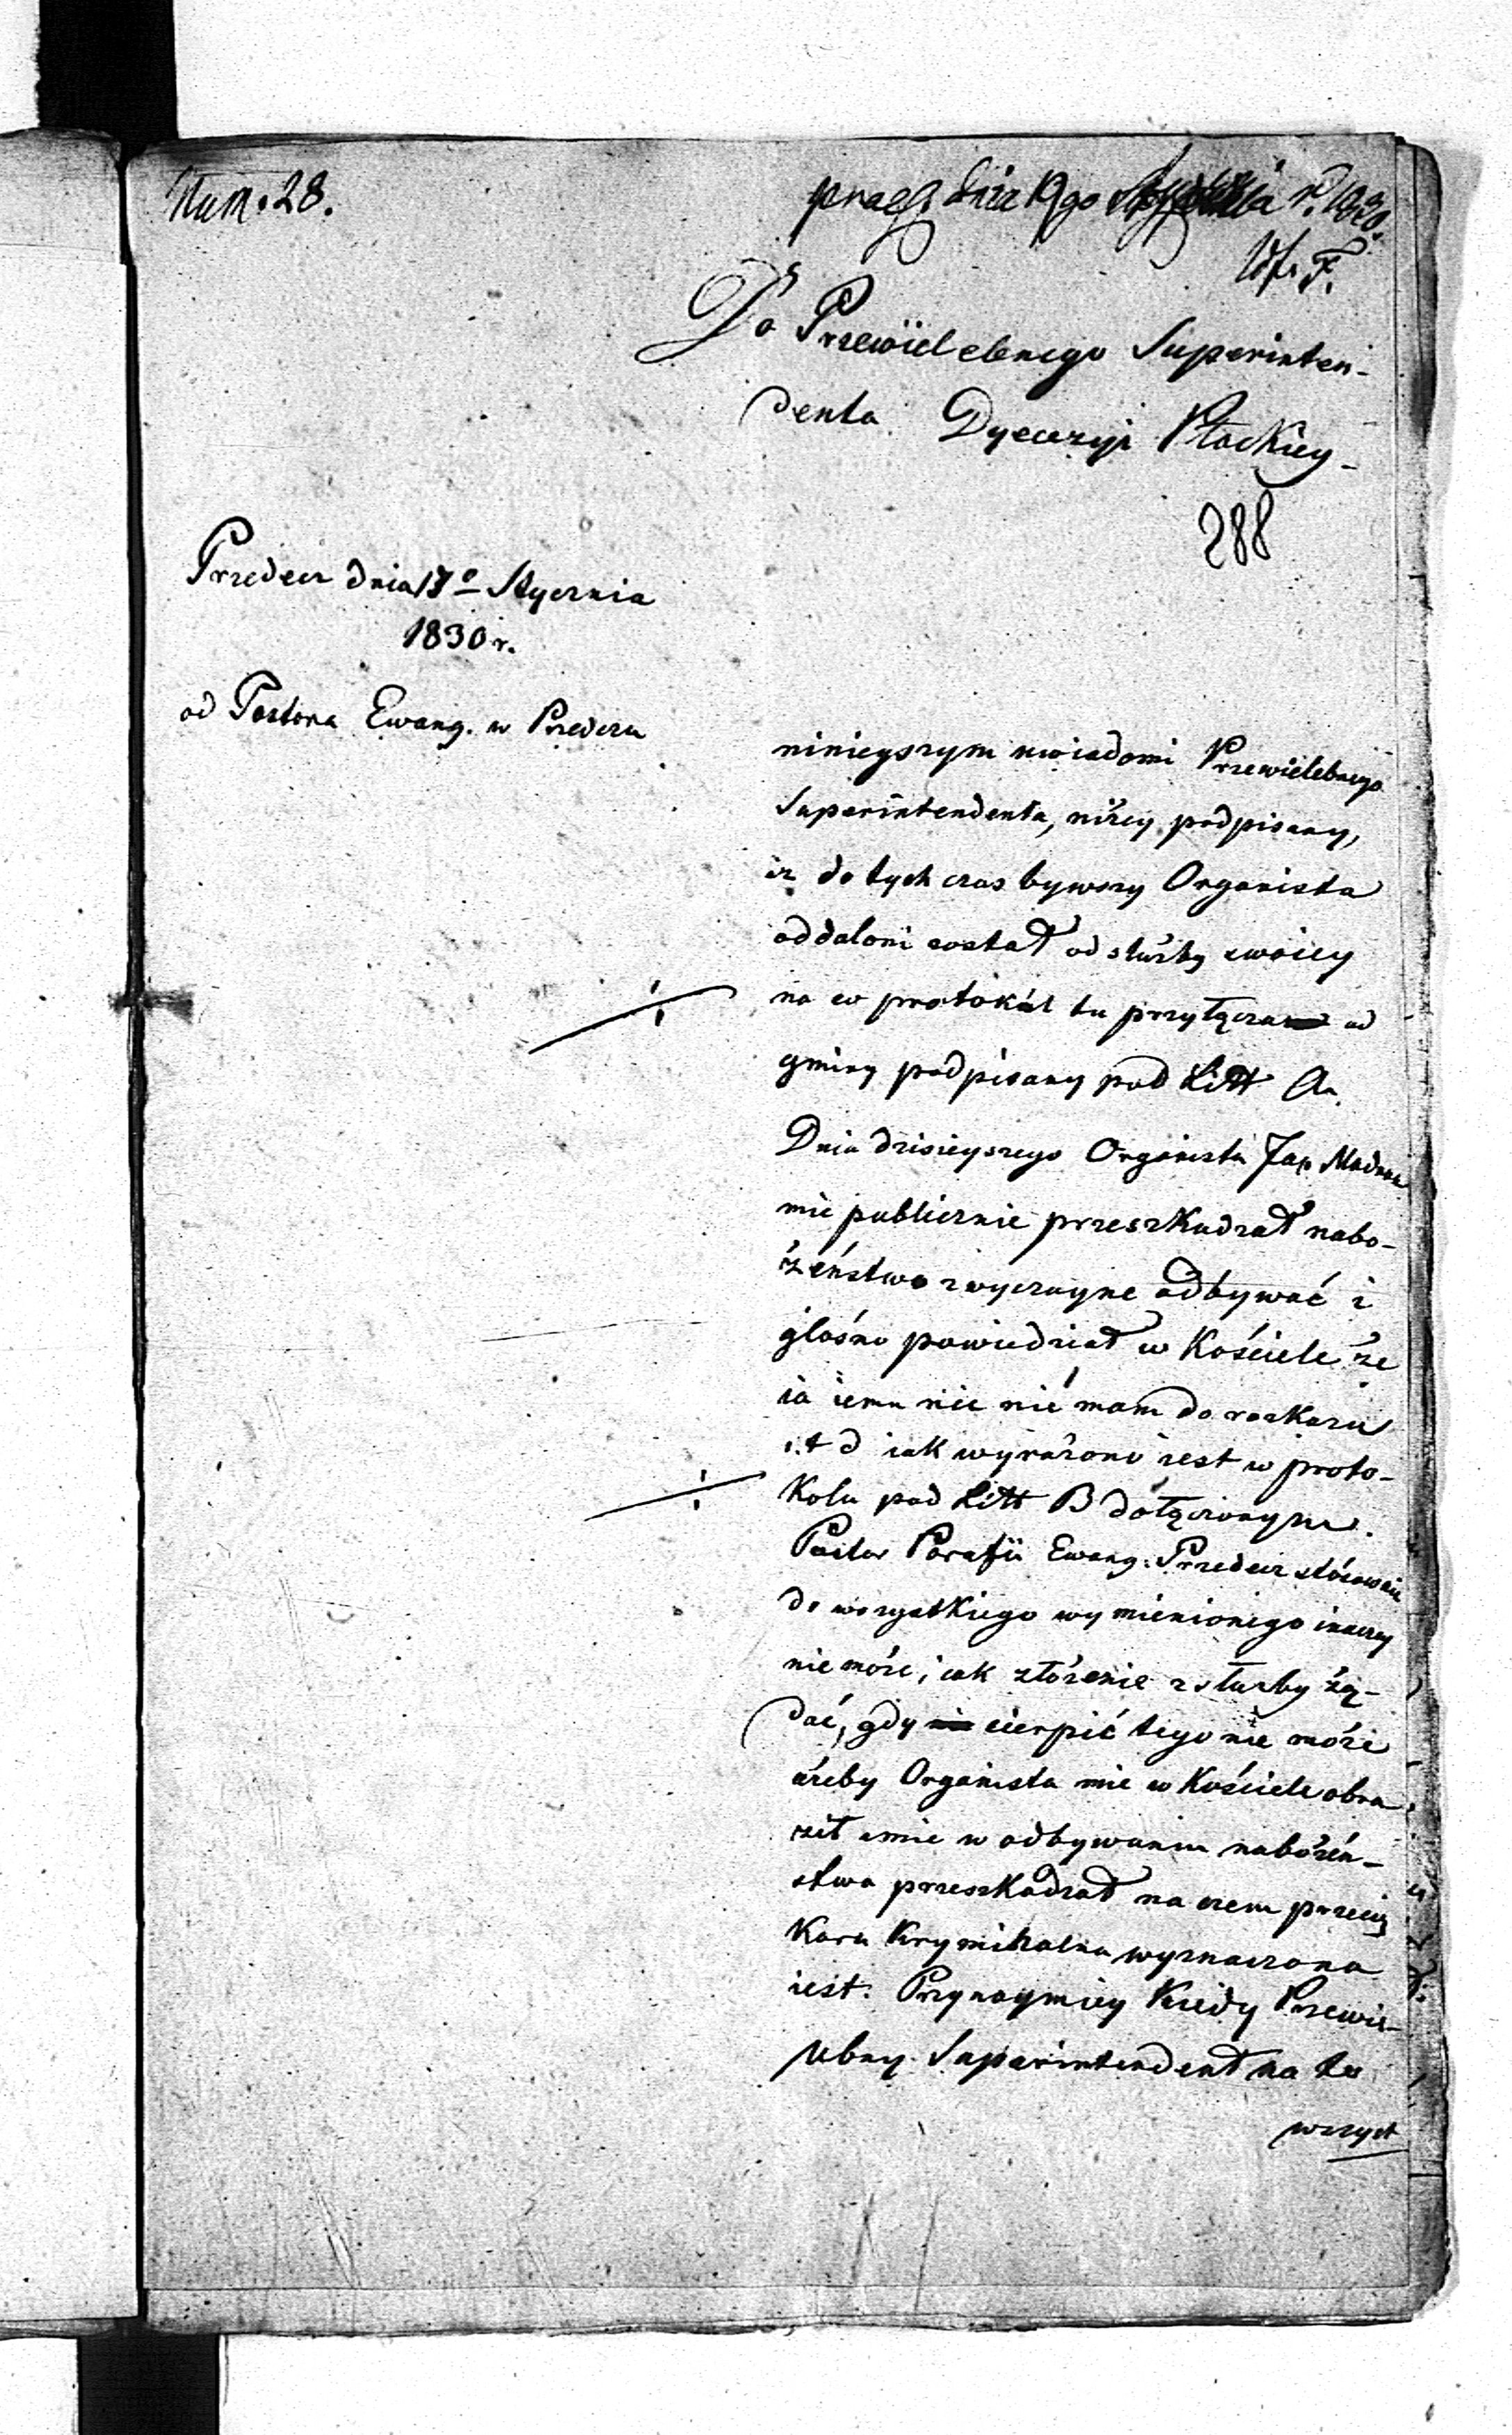 Num. 28.
praes dnia 19go Stycznia r. 1830.
Do Przewielebnego Superinten-
denta Dyecezyi Płockiey-
288
Przedecz dnia 17o Stycznia
1830 r.
od Pastora Ewang. w Przedczu
ninieyszym uwiadomi Przewielebnego
Superintendenta, niżey podpisany,
iz do tych czas bywszy Organista
oddaloni został od służby swoiey
na co protokół tu przyłącza od
gminy podpisany pod Litt A.
Dnia dzisieyszego Organista Jan
mie publicznie przeszkadzał nabo-
żeństwo zwyczayne odbywać i
glośno powiedział w Kościele że
ia iemu nic nié mam do roskazu
i.t d iak wyrażono iest w proto-
kolu pod Litt B dołączonym.
Pastor Parafii Ewang. Przedecz stósownie
do wszystkiego wymienionego inaczey
nie może, iak złożenie z służby żą-
dać, gdy cierpić tego nie może
ażeby Organista mie w Kościele obra
ził amie w odbywaniu nabożeń-
stwa przeszkadzał na czem przecię
kara kryminalna wyznaczona
iest. Przynaymiey kiedy Przewie-
lebny Superintendent na to
wszyst